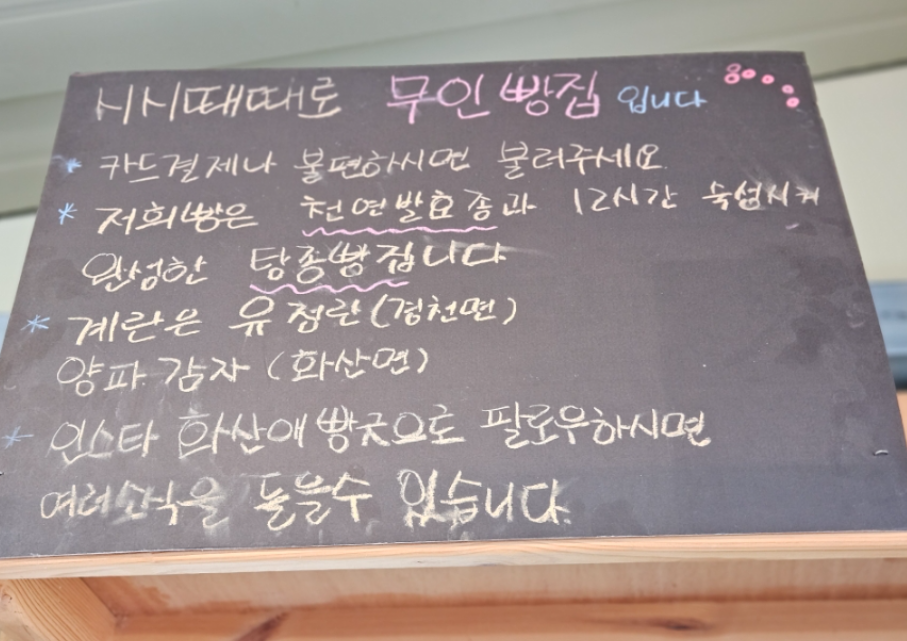 시시때때로 무인빵집 입니다
* 카드결제나 불편하시면 불러주세요
* 저희빵은 천연발효종과 12시간 숙성시켜
완성한 탕종빵집니다
* 계란은 유정란(경천면)
양파 감자 (화산면)
* 인스타 화산애빵긋으로 팔로우하시면
여러소식을 들을수 있습니다.